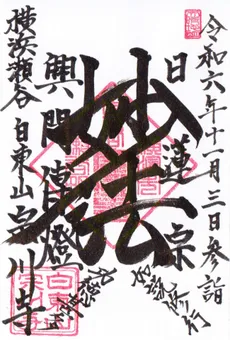 令和六年十一月三日参詣
日蓮宗
如説修行
妙法
興門
傳燈
横浜瀬谷
白東山宗川寺